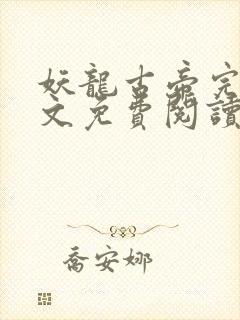 妖龍古帝完
文免費閱讀
喬安娜